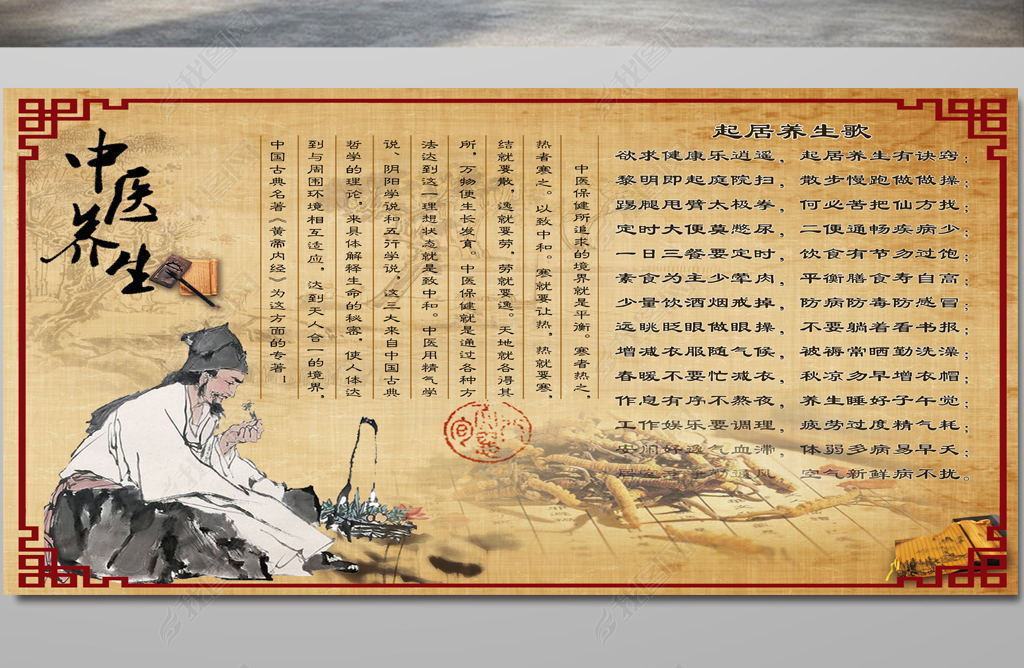 中医养生
中医保健所追求的境界就是平衡。寒者热之,
热者寒之。以致中和。寒就要让热,热就要寒,
结就要散,逸就要劳,劳就要逸。天地就各得其
所,万物便生长发育。中医保健就是通过各种方
法达到这一理想状态就是致中和。中医用精气学
说、阴阳学说和五行学说,这三大来自中国古典
哲学的理论,来具体解释生命的秘密,使人体达
到与周围环境相互适应,达到天人合一的境界,
中国古典名著《黄帝内经》为这方面的专著!
起居养生歌
欲求健康乐逍遥,起居养生有诀窍;
黎明即起庭院扫,散步慢跑做做操;
踢腿甩臂太极拳,何必苦把仙方找;
定时大便莫憋尿,二便通畅疾病少;
一日三餐要定时,饮食有节勿过饱;
素食为主少荤肉,平衡膳食寿自高;
少量饮酒烟戒掉,防病防毒防感冒;
远眺眨眼做眼操,不要躺着看书报;
增减衣服随气候,被褥常晒勤洗澡;
春暖不要忙减衣,秋凉勿早增衣帽;
作息有序不熬夜,养生睡好子午觉;
工作娱乐要调理,疲劳过度精气耗;
气血滞,体弱多病易早夭;
空气新鲜病不扰。